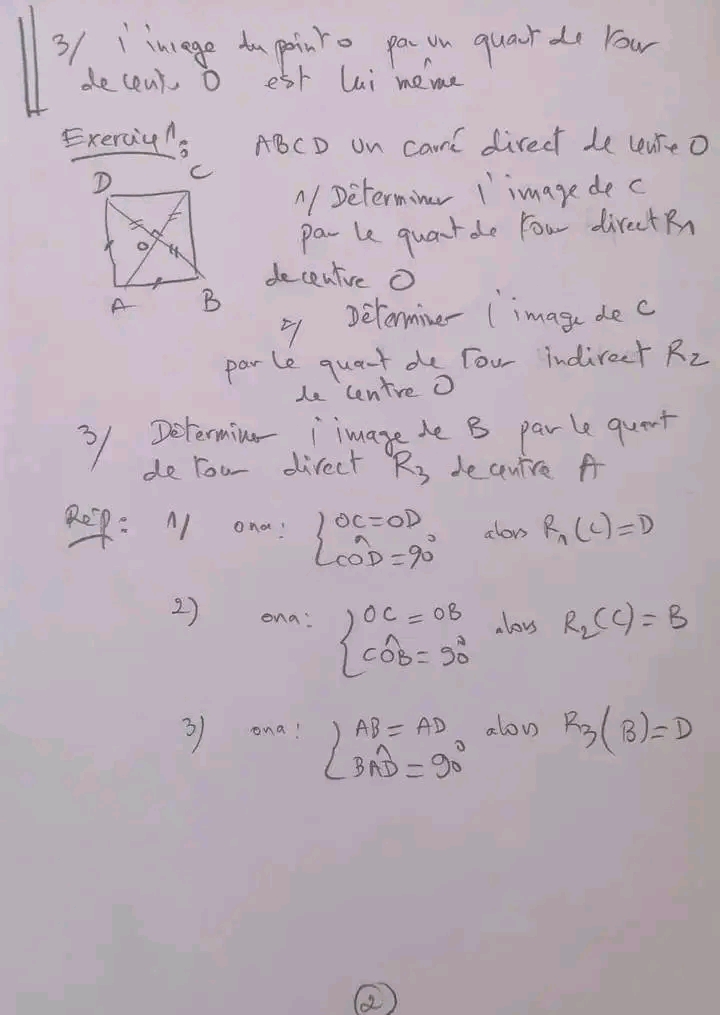 3/ l'image du point o par un quart de tour
de centre O est lui même
Exercice 1:
ABCD un carré direct de centre O
D C
O
A B
1/ Déterminer l'image de C
par le quart de tour direct R1
de centre O
2/ Déterminer l'image de C
par le quart de tour indirect R2
de centre O
3/ Déterminer l'image de B par le quart
de tour direct R3 de centre A
Rép: 1/ on a: { OC = OD
CÔD = 90° alors R1(C) = D
2) on a: { OC = OB
CÔB = 90° alors R2(C) = B
3) on a: { AB = AD
BÂD = 90° alors R3(B) = D
2